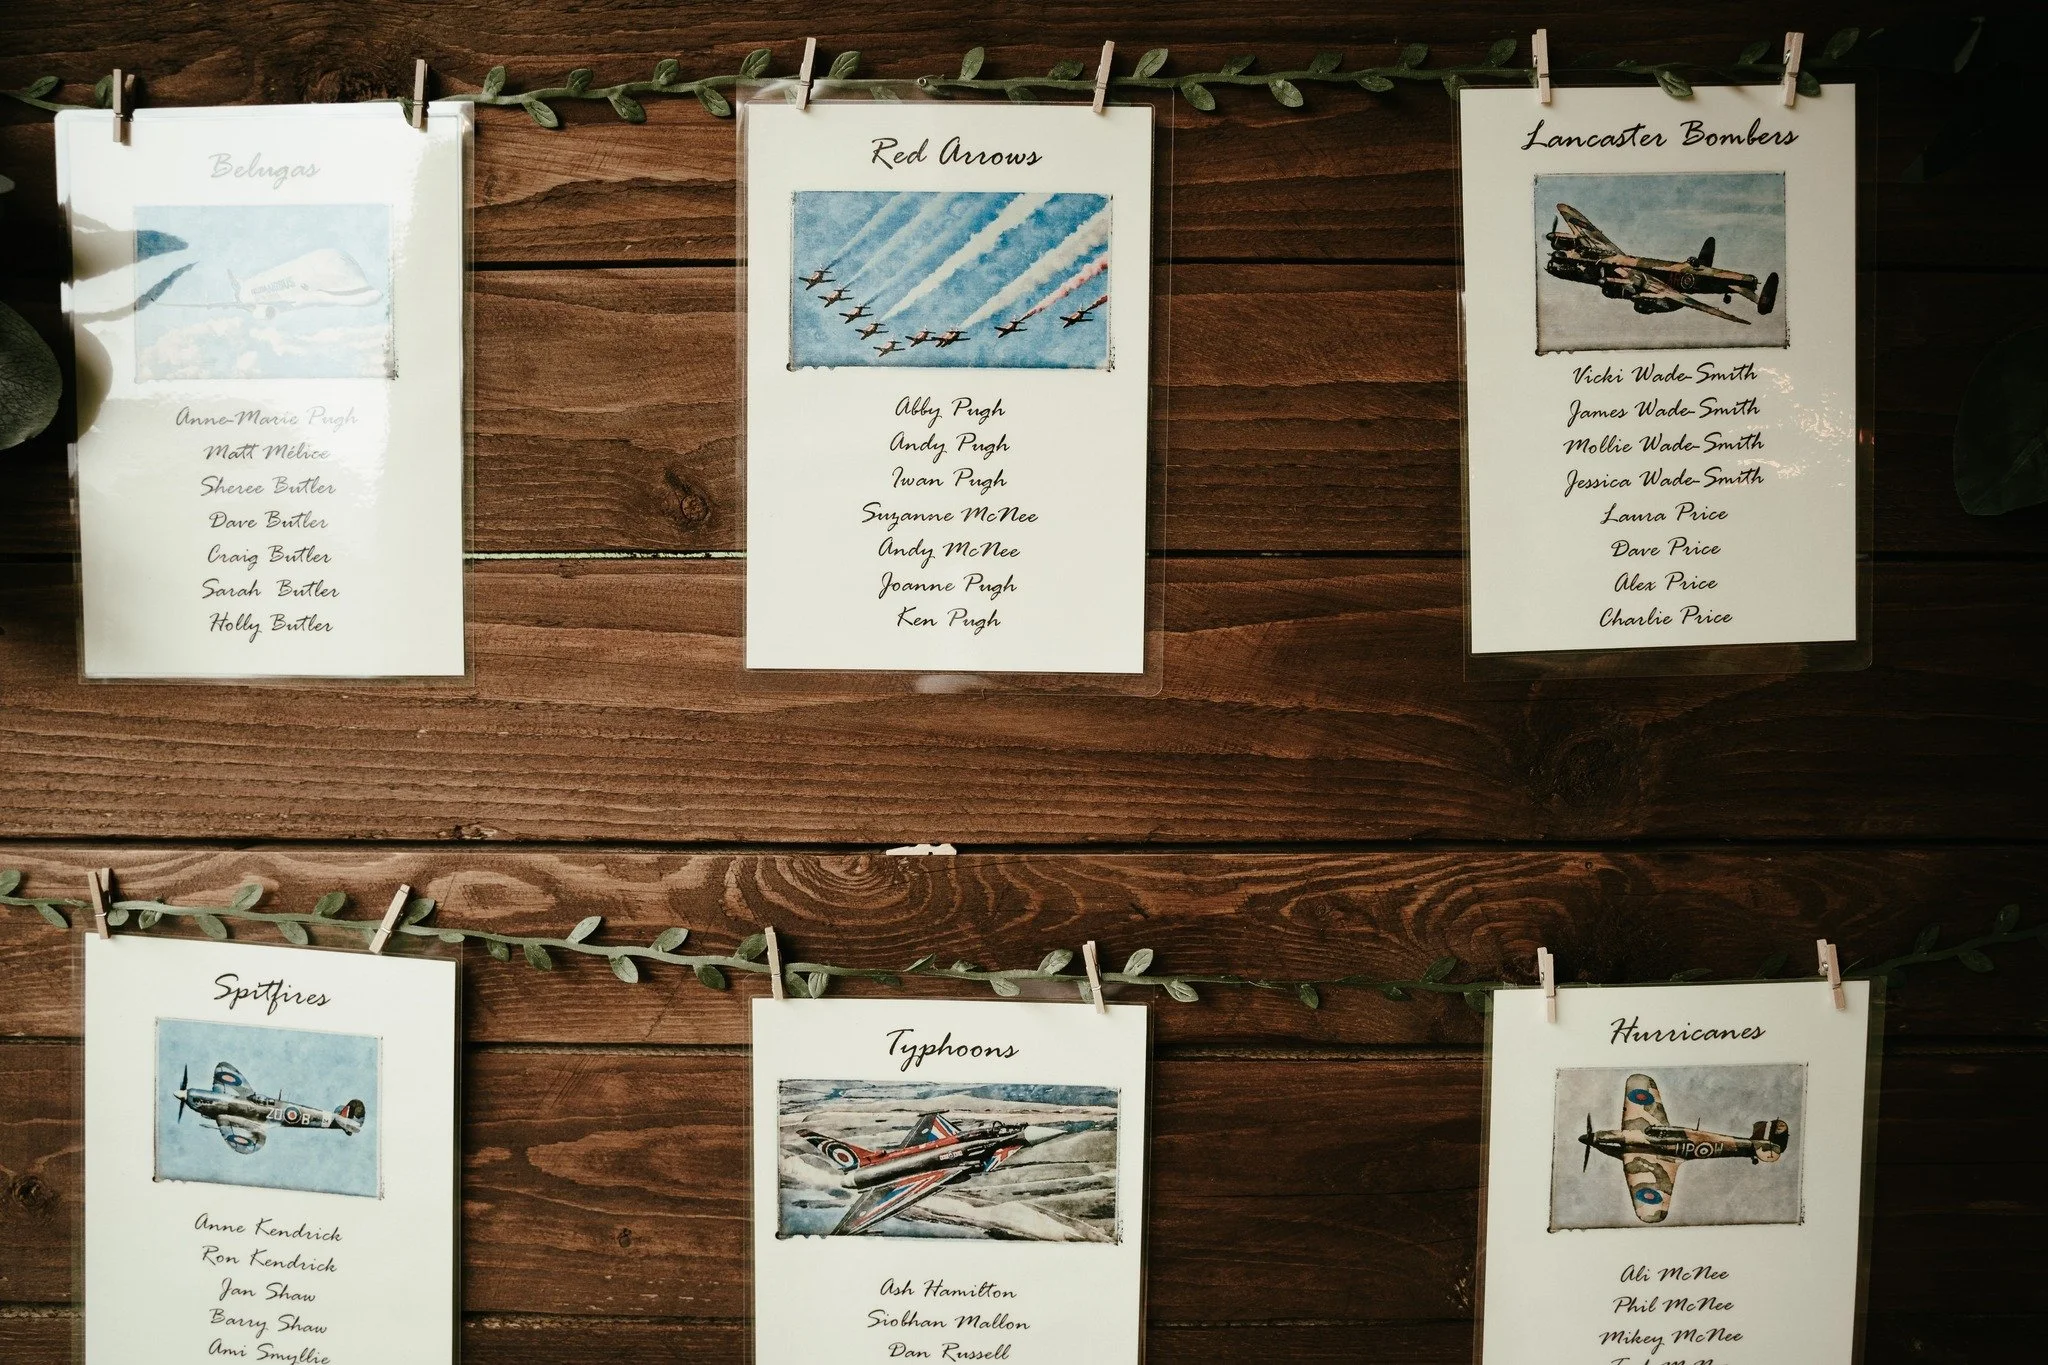 Belugas
Anne-Marie Pugh
Matt Mélice
Sheree Butler
Dave Butler
Craig Butler
Sarah Butler
Holly Butler
Red Arrows
Abby Pugh
Andy Pugh
Iwan Pugh
Suzanne McNee
Andy McNee
Joanne Pugh
Ken Pugh
Lancaster Bombers
Vicki Wade-Smith
James Wade-Smith
Mollie Wade-Smith
Jessica Wade-Smith
Laura Price
Dave Price
Alex Price
Charlie Price
Spitfires
ZD B
Anne Kendrick
Ron Kendrick
Jan Shaw
Barry Shaw
Ami Smyllie
Typhoons
Ash Hamilton
Siobhan Mallon
Dan Russell
Hurricanes
UP W
Ali McNee
Phil McNee
Mikey McNee